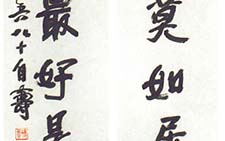 莫如居
最好是
八十自壽